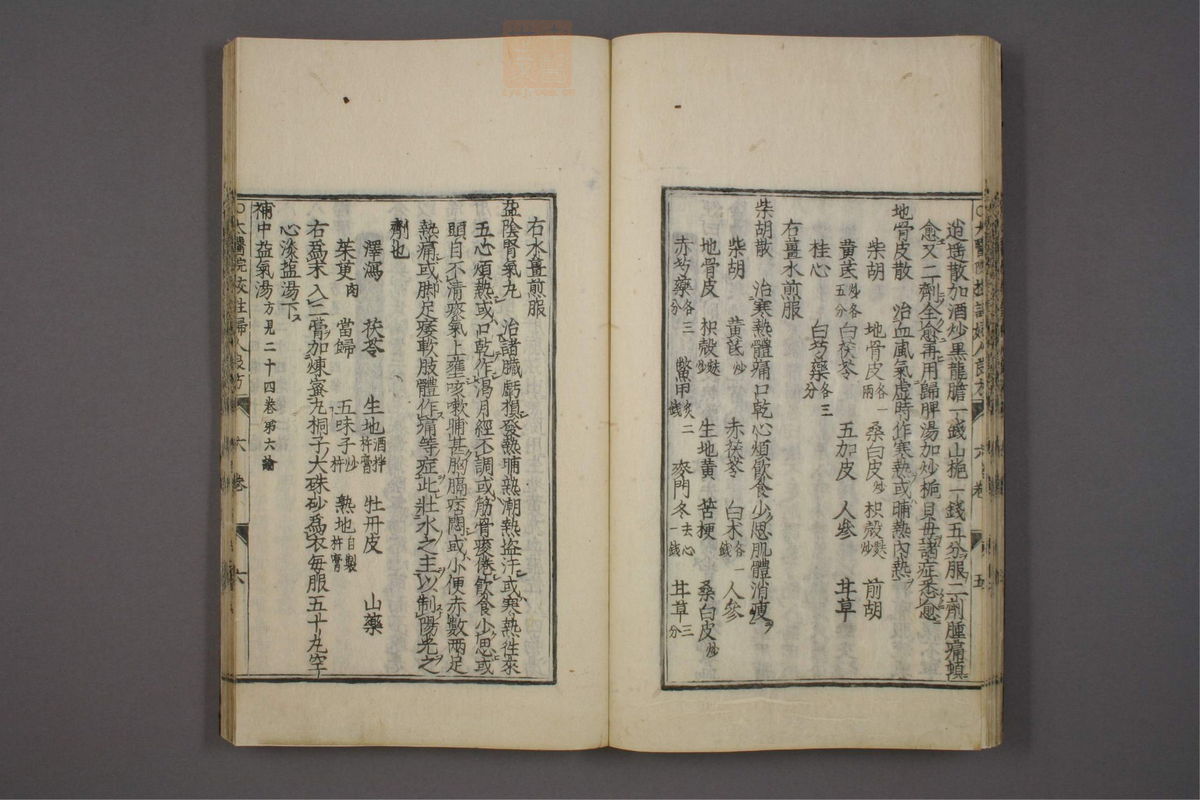 逍遥散加酒炒黑龍膽一錢山梔一錢五分服二劑腫痛頓
愈又二劑全愈再用歸脾湯加炒梔貝母諸症悉愈
地骨皮散 治血風氣虚時作寒熱或晡熱内熱
柴胡 地骨皮各一兩 桑白皮炒 枳殻麩炒 前胡
黄芪炒各五分 白茯苓 五加皮 人參 甘草
桂心 白芍藥各三分
右薑水煎服
柴胡散 治寒熱體痛口乾心煩飲食少思肌體消瘦
柴胡 黄芪炒 赤茯苓 白术各一錢 人參
地骨皮 枳殻麩炒 生地黄 苦梗 桑白皮炒
赤芍藥各三分 鱉甲炙二錢 麥門冬去心一錢 甘草三分
右水薑煎服
益陰腎氣丸 治諸臟虧損發熱晡熱潮熱盗汗或寒熱徃來
五心煩熱或口乾作渇月經不調或筋骨痿倦飲食少思或
頭目不清痰氣上壅咳嗽晡甚胸膈痞悶或小便赤數兩足
熱痛或脚足痿軟肢體作痛等症此壯水之主以制陽光之
劑也
澤瀉 茯苓 生地酒拌杵膏 牡丹皮 山藥
茱萸肉 當歸 五味子炒杵 熟地自製杵膏
右爲末入二膏加煉蜜丸桐子大硃砂爲衣毎服五十丸空
心淡塩湯下
補中益氣湯方見二十四卷第六論
六卷
六